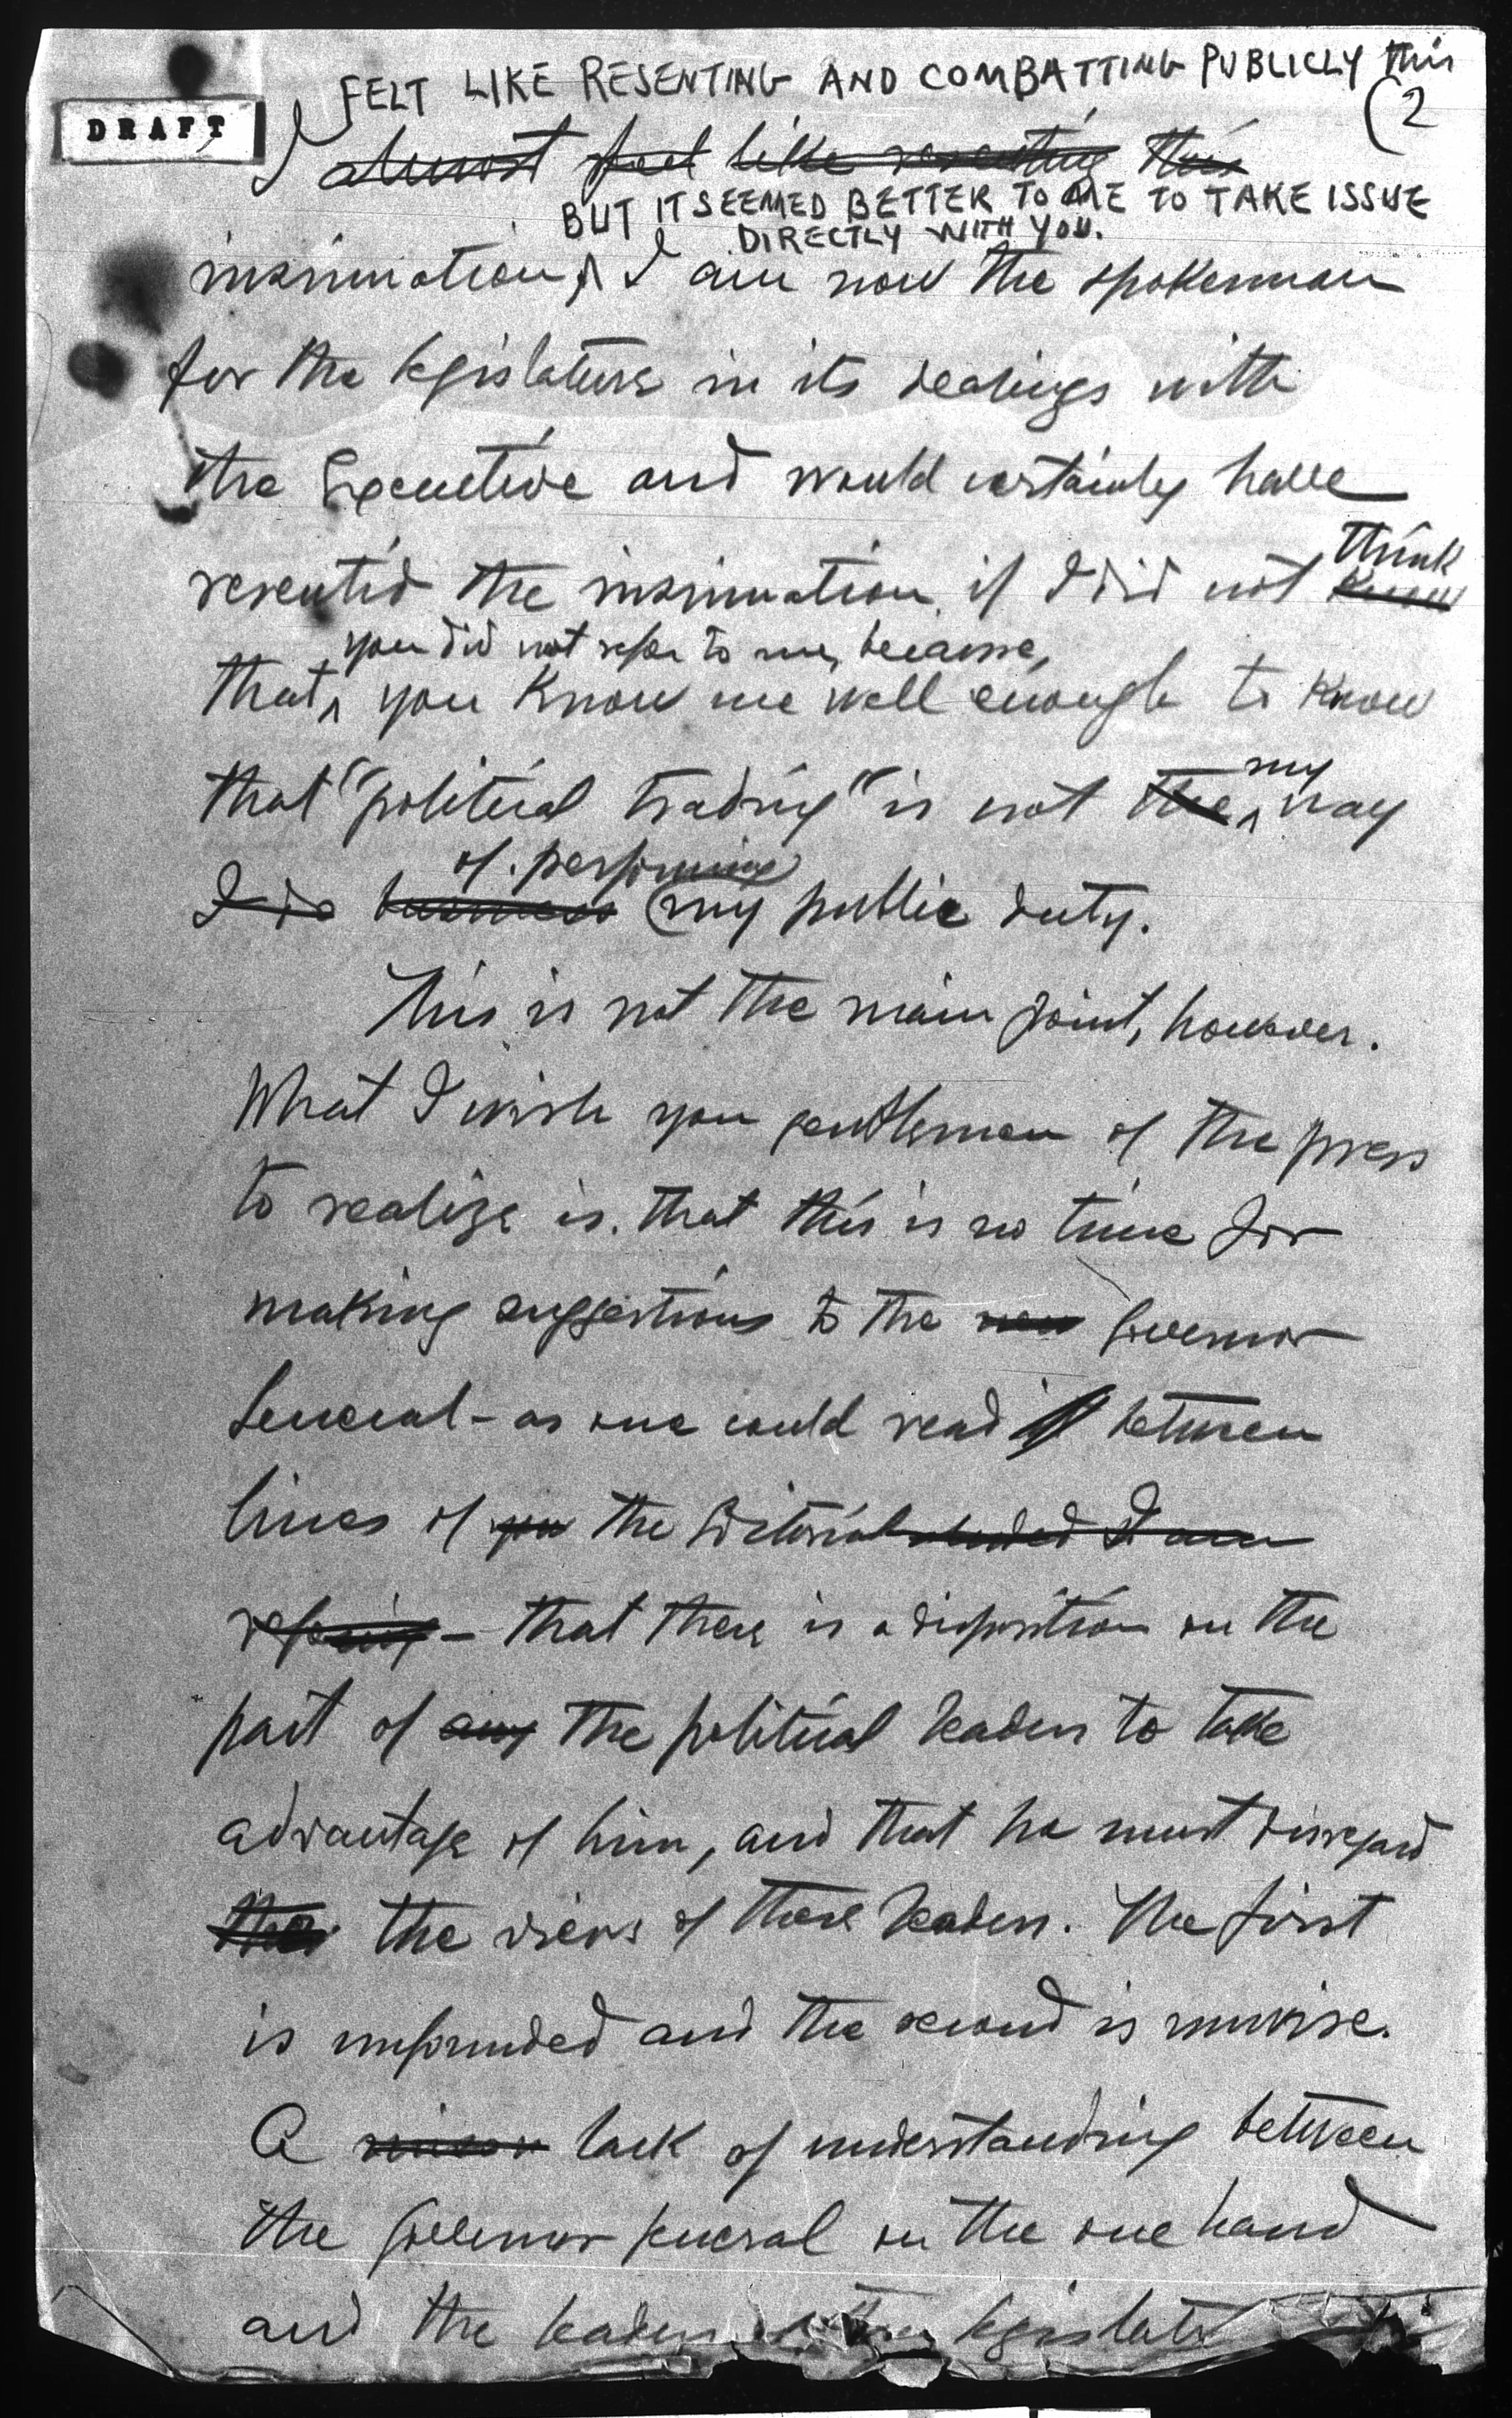 DRAFT
FELT LIKE RESENTING AND COMBATTING PUBLICLY this
(2
I almost feel like resenting this
BUT IT SEEMED BETTER TO ME TO TAKE ISSUE
DIRECTLY WITH YOU.
insinuation, I am now the spokesman
for the legislature in its dealings with
the Executive and would certainly have
think
resented the insinuation if I did not know
you did not refer to me, because,
that, you know me well enough to know
my
that "political trading" is not the way
of performing
I do business my public duty.
This is not the main point, however.
What I wish you gentlemen of the press
to realize is that this is no time for
making suggestions to the new Governor
General - as one could read between
lines of you the Editorial alluded I am
refering - that there is a disposition on the
part of any the political leaders to take
advantage of him, and that he must disregard
the views of those leaders. The first
is unfounded and the second is unwise.
A lack of understanding between
the Governor General on the one hand
and the leaders of the legislat